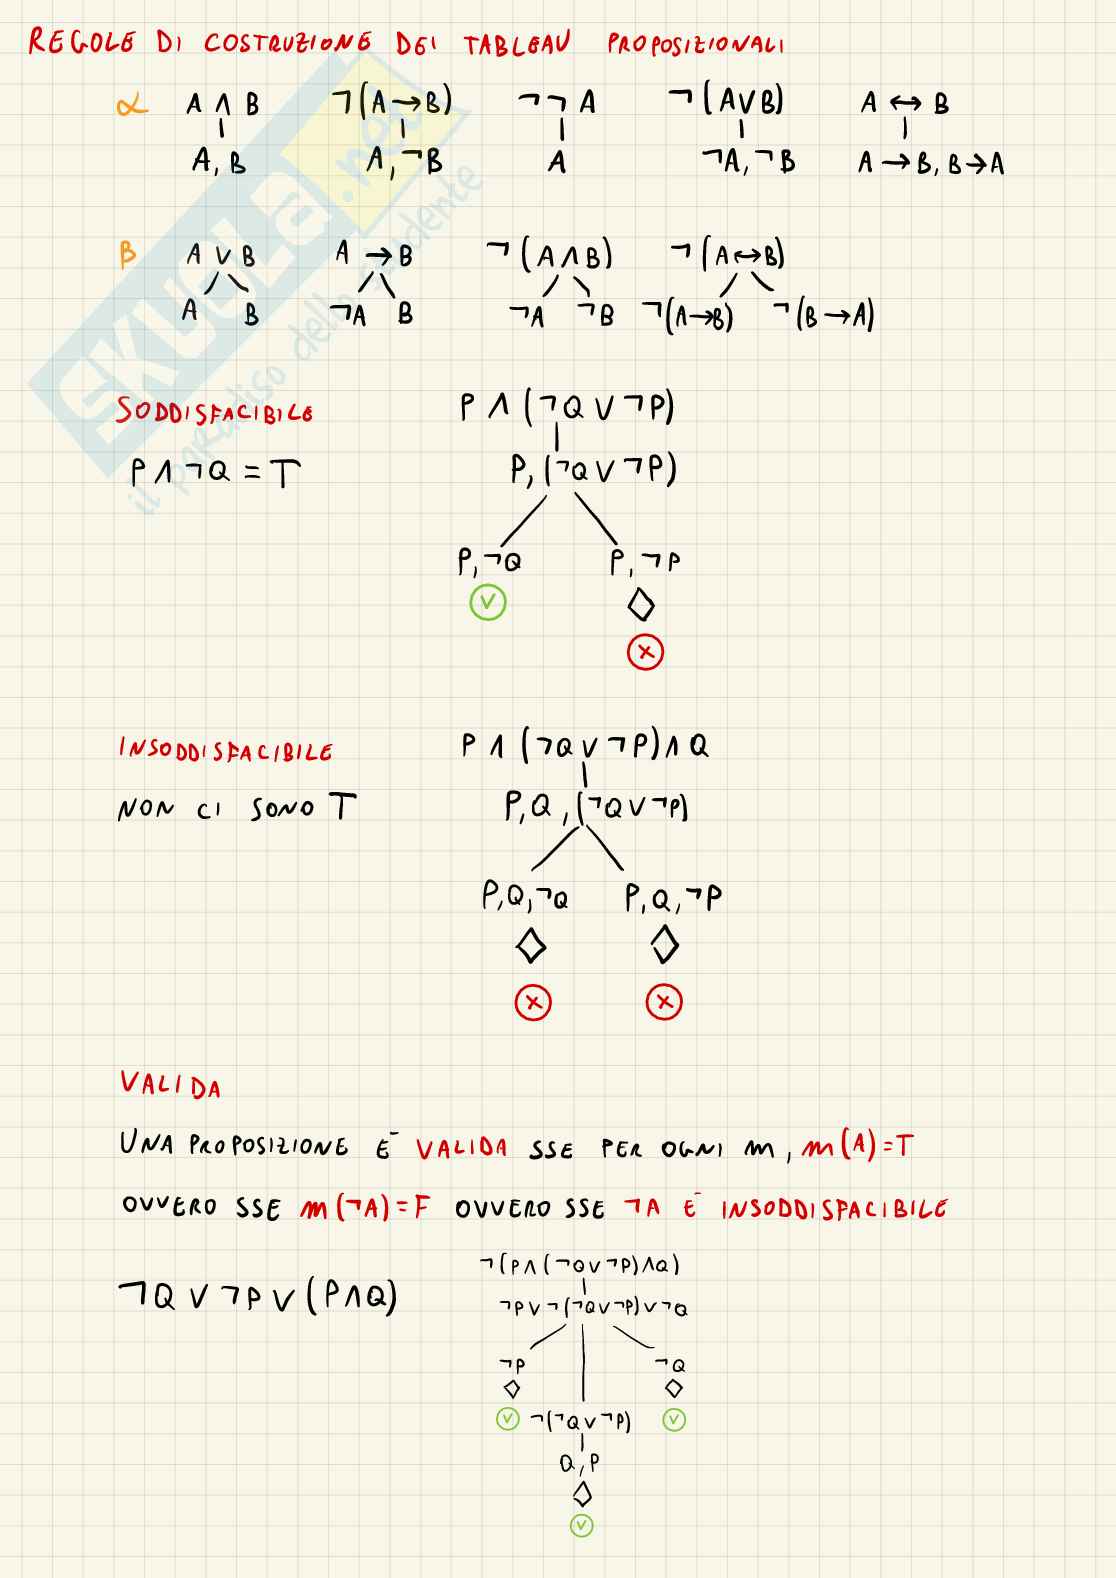 REGOLE DI COSTRUZIONE DEI TABLEAU PROPOSIZIONALI
α A ∧ B ¬(A → B) ¬¬A ¬(A∨B) A ↔ B
A, B A, ¬B A ¬A, ¬B A → B, B → A
β A ∨ B A → B ¬(A ∧ B) ¬(A ↔ B)
A B ¬A B ¬A ¬B ¬(A→B) ¬(B → A)
SODDISFACIBILE P ∧ (¬Q ∨ ¬P)
P ∧ ¬Q = T P, (¬Q ∨ ¬P)
P, ¬Q P, ¬P
INSODDISFACIBILE P ∧ (¬Q ∨ ¬P) ∧ Q
NON CI SONO T P, Q, (¬Q ∨ ¬P)
P, Q, ¬Q P, Q, ¬P
VALIDA
UNA PROPOSIZIONE È VALIDA SSE PER OGNI m, m(A)=T
OVVERO SSE m(¬A)=F OVVERO SSE ¬A È INSODDISFACIBILE
¬(P∧(¬Q∨¬P)∧Q)
¬Q ∨ ¬P ∨ (P∧Q) ¬P ∨ ¬(¬Q∨¬P) ∨ ¬Q
¬P ¬Q
¬(¬Q ∨ ¬P)
Q, P
SKUOLA.net
il paradiso dello studente